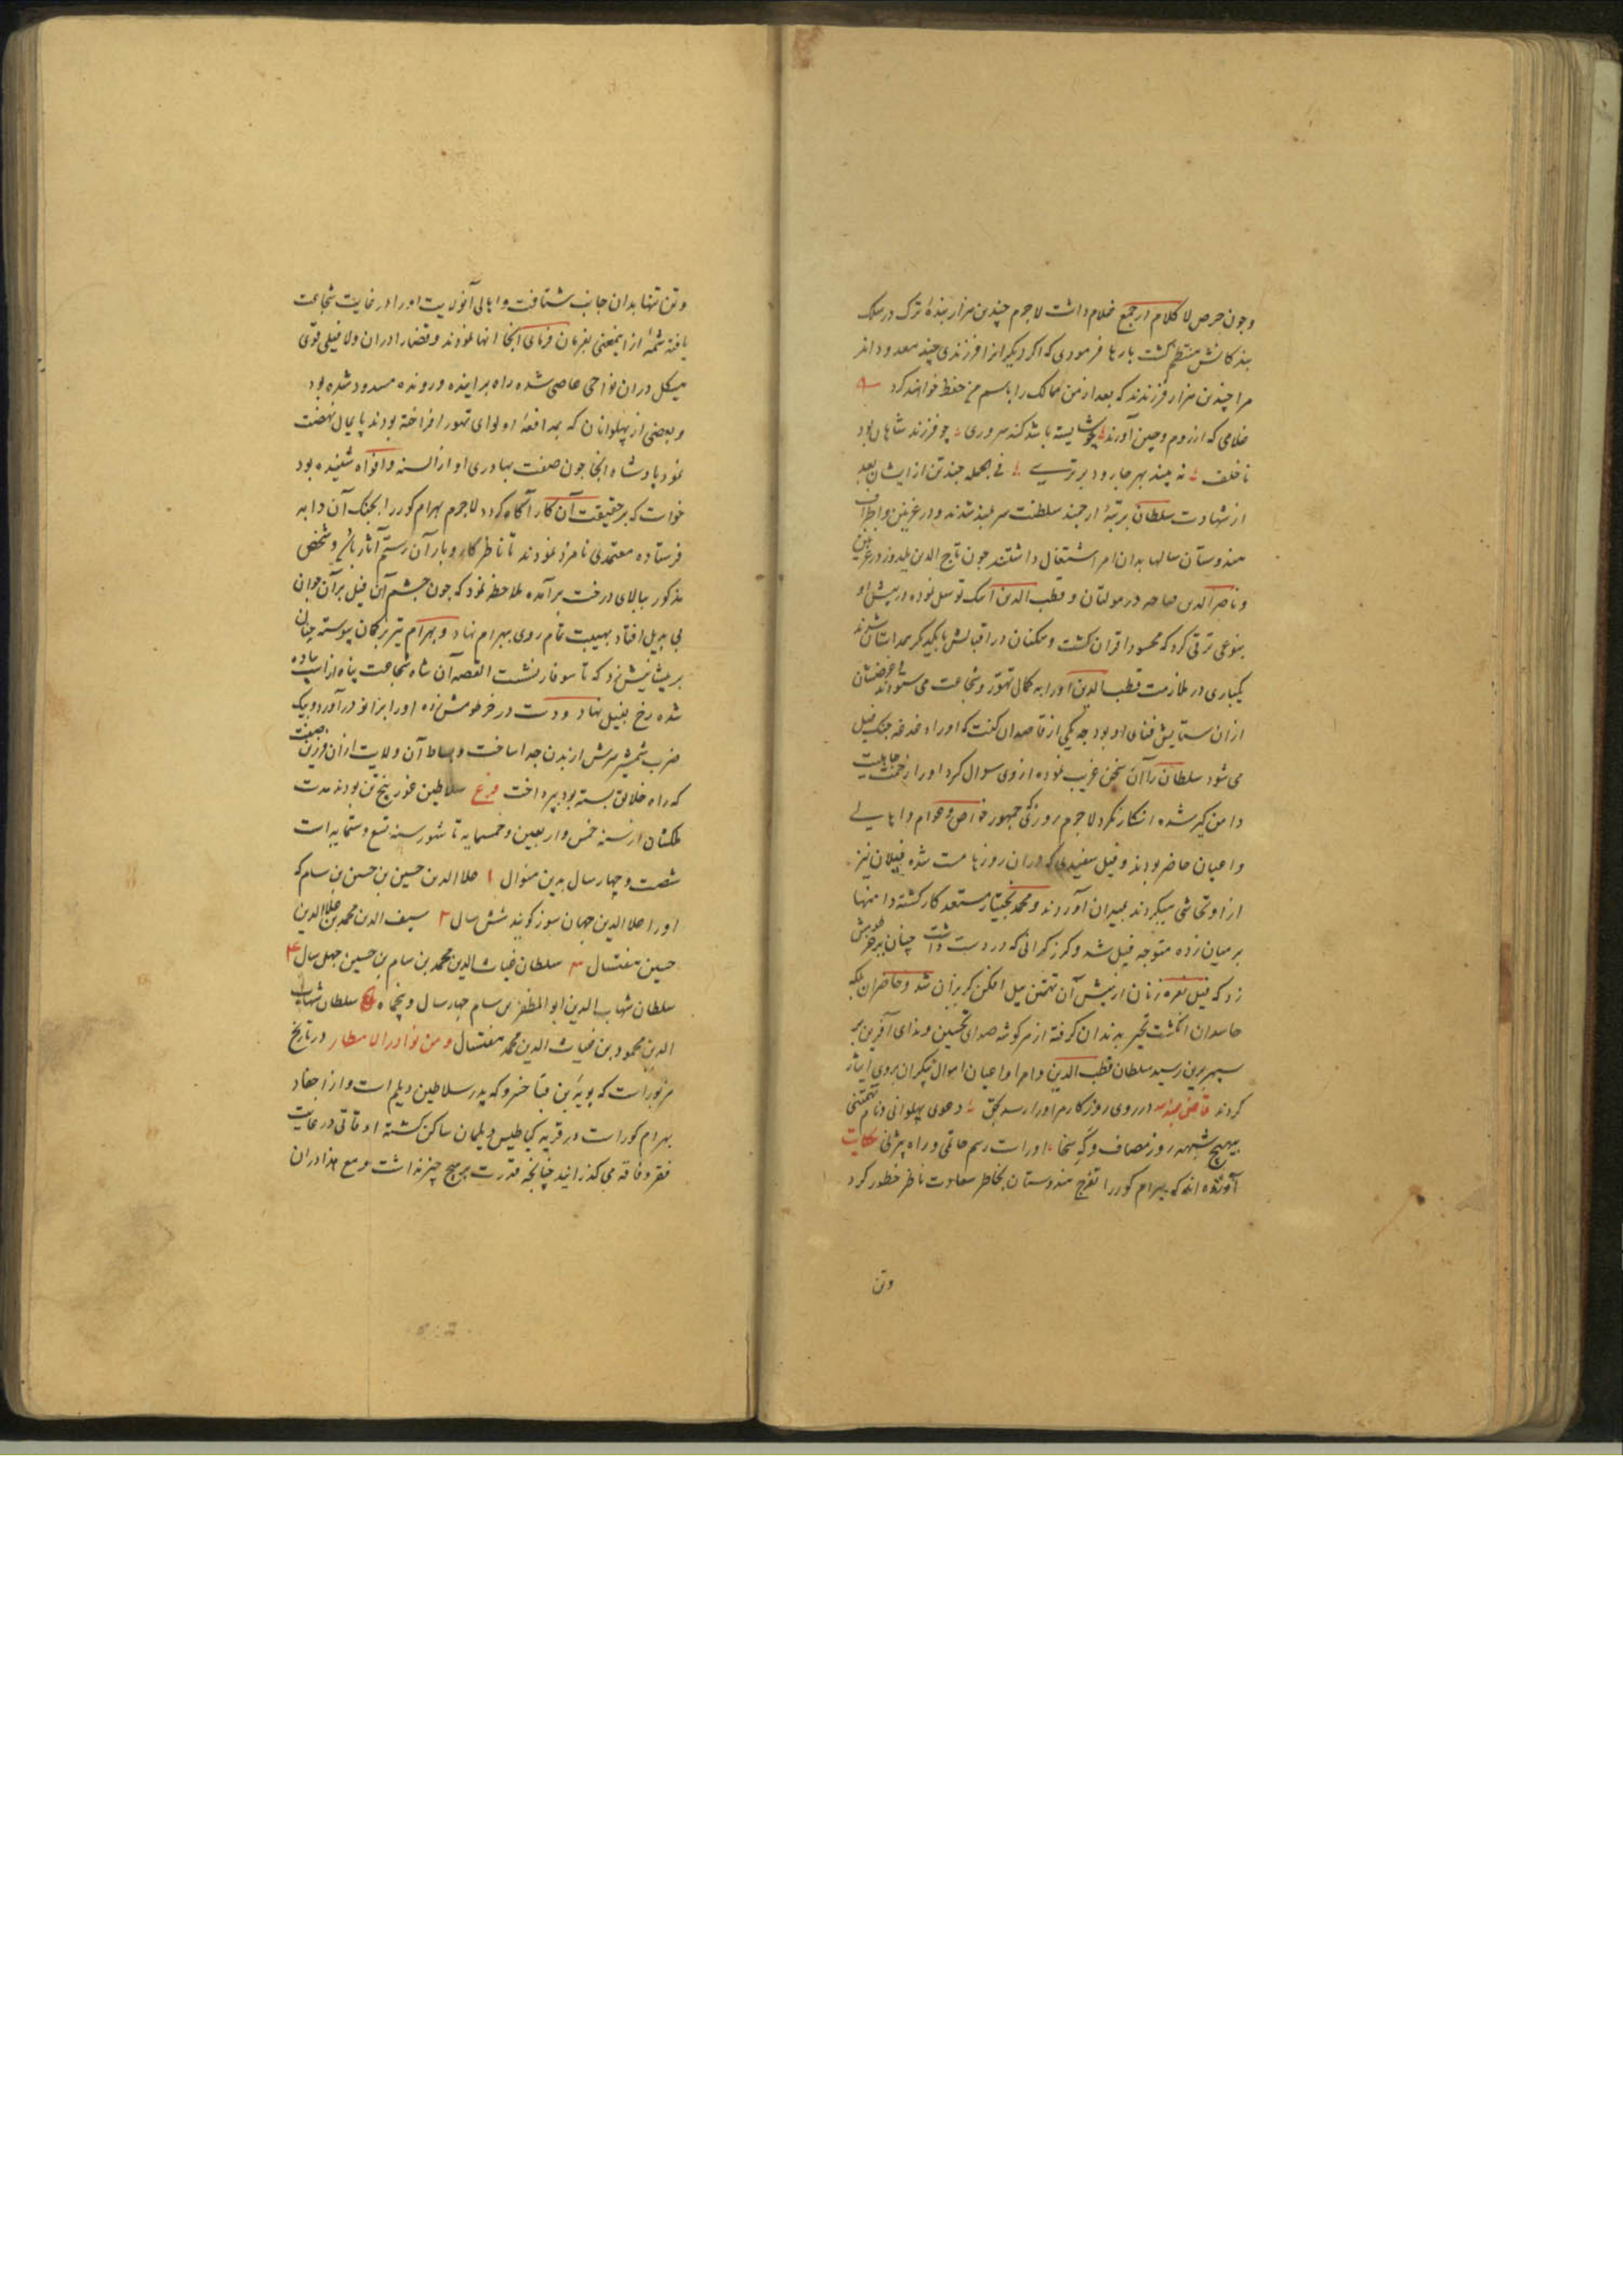 وچون حرص لا کلام از جمع غلام داشت لاجرم چندین هزار بندهٔ ترک در سلک
بندکانش منتظم کشت بارها فرمودی که اکر دیکرانرا فرزندی چند معدوداند
مرا چندین هزار فرزندند که بعد از من ممالک را باسم من حفظ خواهند کرد
غلامی که از روم و چین آورند چو شایسته باشد کند سروری چو فرزند شاهان بود
ناخلف نه بیند بهر جا رود برتری فی الجمله چند تن از ایشان بعد
از شهادت سلطان برتبهٔ ارجمند سلطنت سربلند شدند و در غزنین و اطراف
هندوستان سالها بدان امر اشتغال داشتند چون تاج الدین یلدوز در غزنین
و ناصر الدین قباجه در مولتان و قطب الدین ایبک توسل نموده در پیش او
بنوعی ترقی کرد که محسود اقران کشت و همکنان در اقبالش با یکدیکر همداستان شدند
یکباری در ملازمت قطب الدین اورا به کمال تهور و شجاعت می ستودند و غرضشان
ازان ستایش فنای او بود چه یکی از قاصدان کفت که اورا دغدغه جنک فیل
می شود سلطان را آن سخن غریب نموده از وی سوال کرد اورا حمیت جاهلیت
دامن کیر شده انکار نکرد لاجرم روزی که جمهور خواص و عوام و اهالی
و اعیان حاضر بودند و فیل سفیدی که دران روزها مست شده فیلان نیز
از او تحاشی میکردند بمیدان آوردند و محمد بختیار مستعد کار کشته دامنها
بر میان زده متوجه فیل شد و کرز کرانی که در دست داشت چنان بر خرطومش
زد که فیل نعره زنان از پیش آن تهمتن پیل افکن کریزان شد و حاضران بلکه
حاسدان انکشت تحیر بدندان کرفته از هر کوشه صدای تحسین و ندای آفرین بر
سپهر برین رسید سلطان قطب الدین و امرا و اعیان اموال بیکران بروی ایثار
کردند در روی روزکار مر اورا رسد بحق دعوی پهلوانی و نام تهمتنی
بیهیچ شبهه روز مصاف و که سخا اوراست رسم حاتمی و راه بیژنی حکایت
آورده اند که بهرام کور را تفرج هندوستان بخاطر سعادت ناظر خطور کرد
وتن
وتن تنها بدان جانب شتافت و اهالی آنولایت اورا در غایت شجاعت
یافته شمهٔ از اینمعنی بفرمان فرمای آنجا انها نمودند و قضارا دران ولا فیلی قوی
هیکل دران نواحی عاصی شده راه بر آینده و رونده مسدود شده بود
و بعضی از پهلوانان که بمدافعهٔ او لوای تهور افراخته بودند پایمال نهضت
نمود پادشاه آنجا چون صفت بهادری او از السنه و افواه شنیده بود
خواست که بر حقیقت آن کار آکاه کردد لاجرم بهرام کور را بجنک آن دابه
فرستاده معتمدی نامزد نمودند تا ناظر کار و بار آن رستم آثار باشد و شخص
مذکور ببالای درخت برآمده ملاحظه نمود که چون چشم آن فیل بر آن جوان
بی بدیل افتاد بهیبت تمام روی ببهرام نهاد و بهرام تیر بر کمان پیوسته چنان
بر پیشانیش زد که تا سوفار نشست القصه آن شاه شجاعت پناه از اسب پیاده
شده رخ بفیل نهاد و دست در خرطومش زده اورا بزانو درآورد و بیک
ضرب شمشیر سرش از بدن جدا ساخت و بساط آن ولایت ازان فرزین صفت
که راه خلایق بسته بود بپرداخت فرع سلاطین غور پنج تن بودند مدت
ملکشان از سنه خمس و اربعین و خمسمایه تا شهور سنه تسع و ستمایه است
شصت و چهار سال بدین منوال ۱ علا الدین حسین بن حسن بن سام که
اورا علا الدین جهان سوز کویند شش سال ۲ سیف الدین محمد بن علا الدین
حسین هفتسال ۳ سلطان غیاث الدین محمد بن سام بن حسین چهل سال ۴
سلطان شهاب الدین ابو المظفر بن سام چهار سال و پنجماه ۵ سلطان شهاب
الدین محمود بن غیاث الدین محمد هفتسال و من نوادر الامطار در تاریخ
مزبور است که بویه بن فنا خسرو که پدر سلاطین دیلم است و از احفاد
بهرام کور است در قریه کیاطیس دیلمان ساکن کشته اوقاتی در غایت
فقر و فاقه می کذرانید چنانچه قدرت بر هیچ چیز نداشت و مع هذا دران